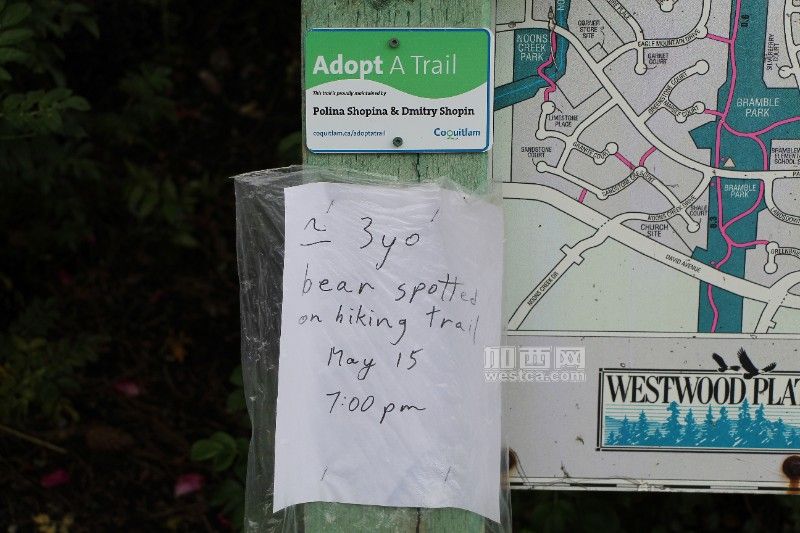 Adopt A Trail
This trail is proudly maintained by
Polina Shopina & Dmitry Shopin
coquitlam.ca/adoptatrail
Coquitlam
~ 3yo
bear spotted
on hiking trail
May 15
7:00 pm
NOONS
CREEK
PARK
CORNER
STORE
SITE
EAGLE MOUNTAIN DRIVE
GARNET
COURT
LIMESTONE
PLACE
SANDSTONE
COURT
BRAMBLE
PARK
BRAMBLE
PARK
SHALE
COURT
CHURCH
SITE
DAVID AVENUE
NOONS CREEK DR
加西网
westca.com
WESTWOOD PLAT